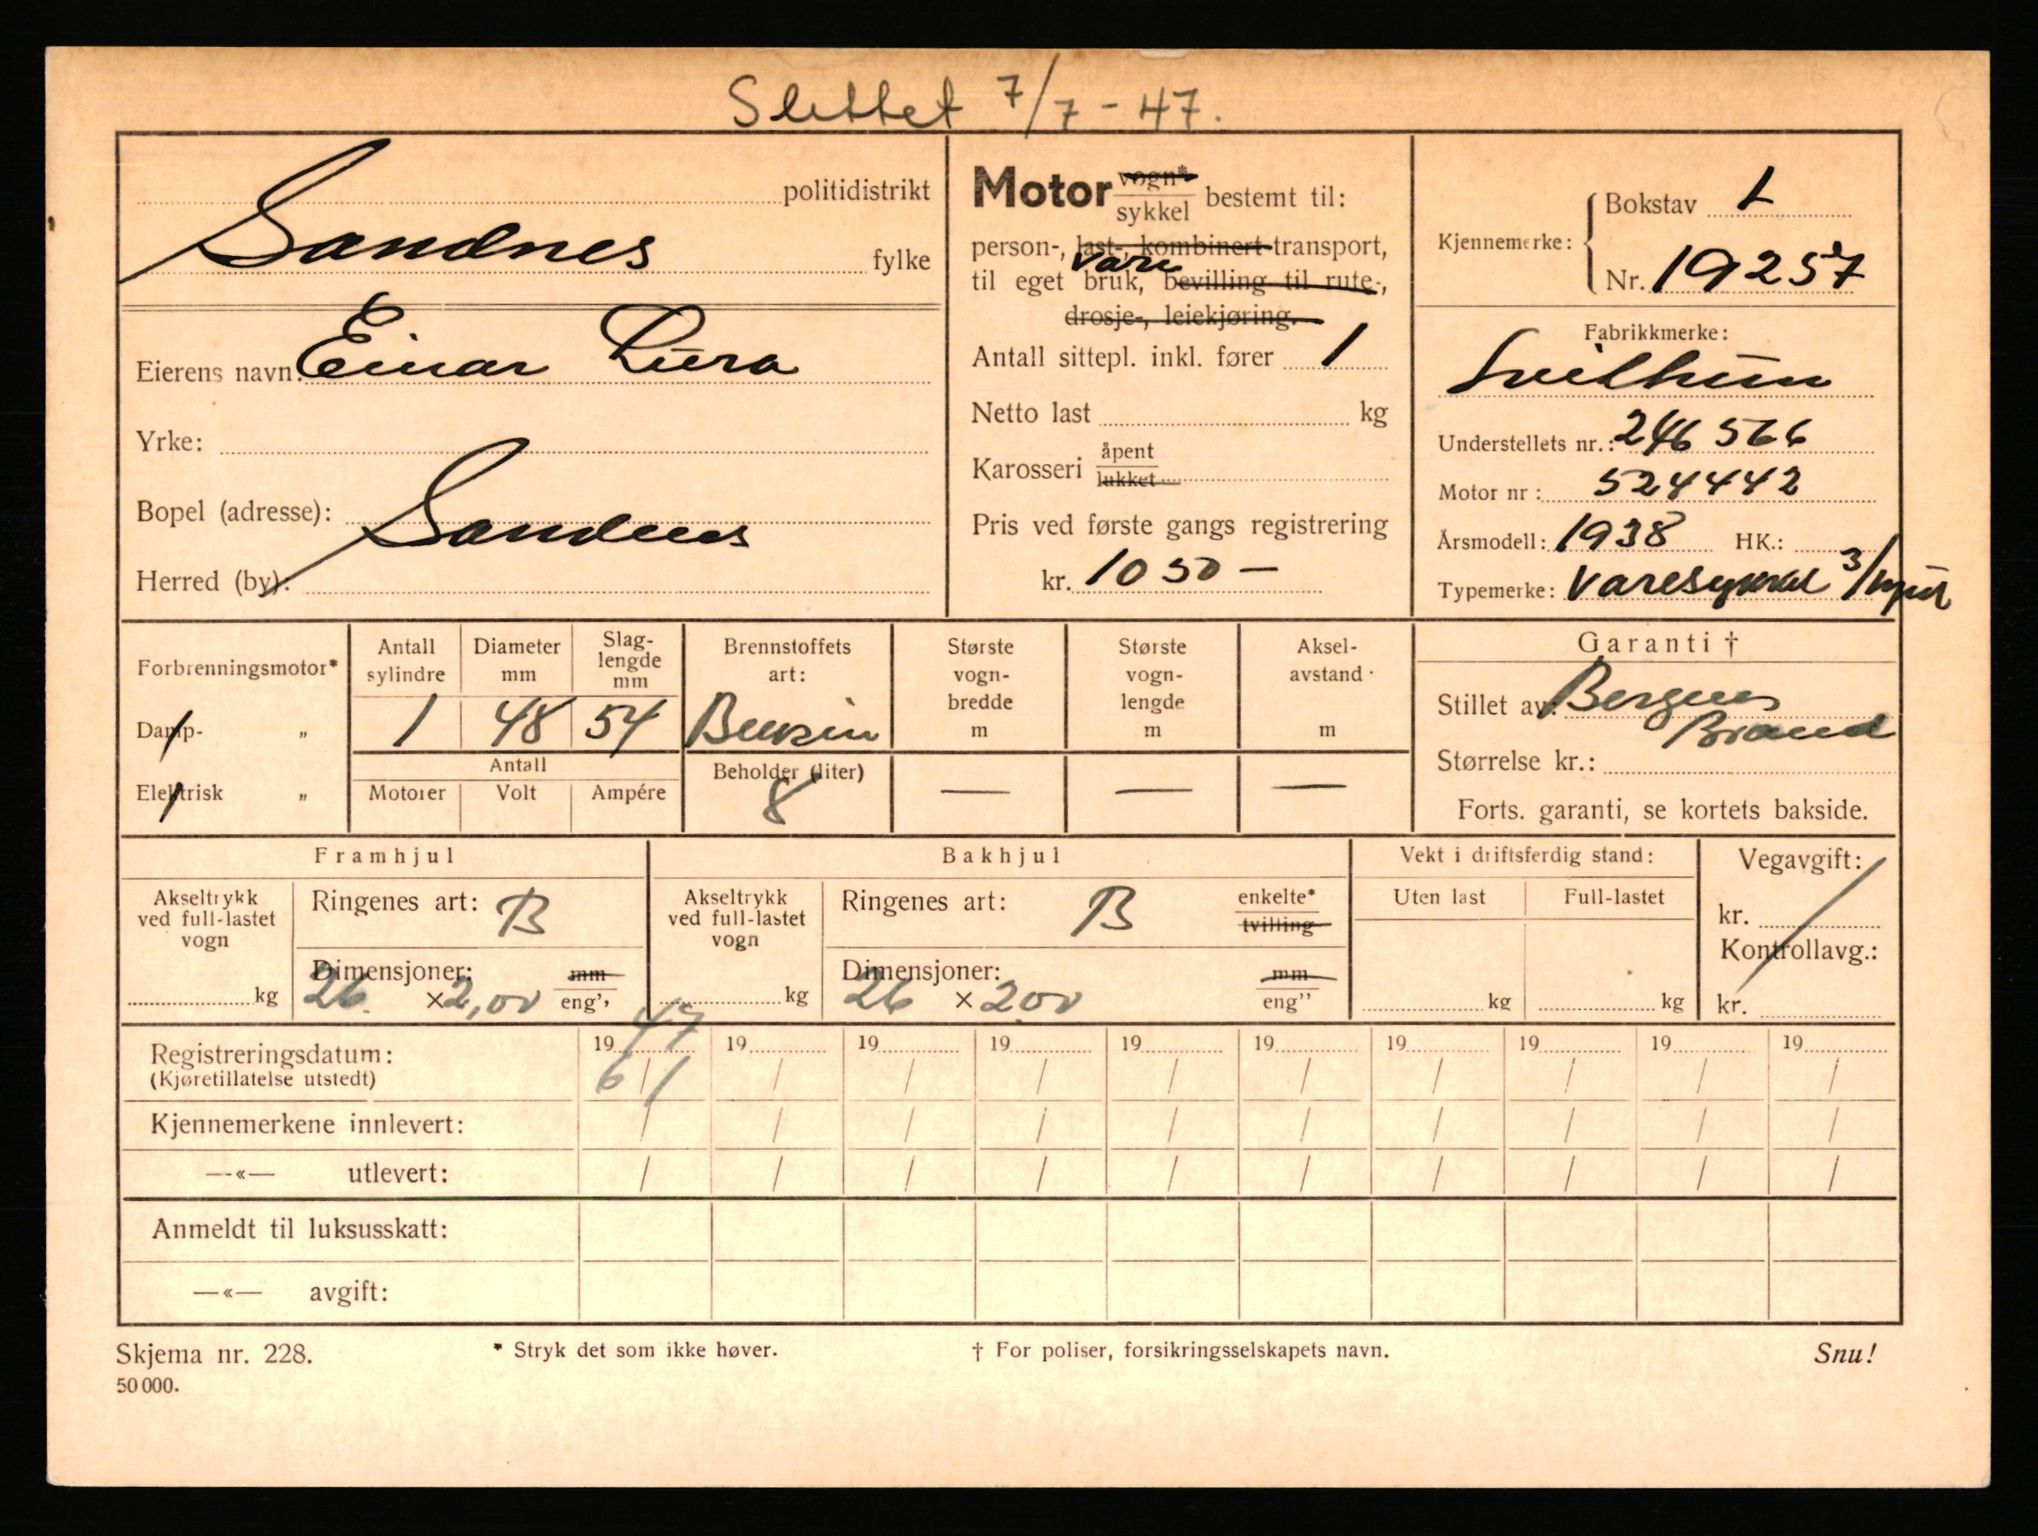 Slettet 7/7-47.
politidistrikt
Sandnes fylke
Eierens navn: Einar Lura
Yrke:
Bopel (adresse): Sandnes
Herred (by):
Motor vogn* sykkel bestemt til:
person-, last-, kombinert transport,
vare
til eget bruk, bevilling til rute-,
drosje-, leiekjøring.
Antall sittepl. inkl. fører 1
Netto last kg
Karosseri åpent lukket
Pris ved første gangs registrering
kr. 1050 —
Kjennemerke: Bokstav L
Nr. 19257
Fabrikkmerke:
Svithun
Understellets nr.: 246566
Motor nr: 524442
Årsmodell: 1938 HK.:
Typemerke: Varesykkel 3/hjul
Forbrenningsmotor*
Damp- „
Elektrisk „
Antall sylindre
1
Diameter mm
48
Slag-
lengde
mm
54
Antall
Motorer Volt Ampére
Brennstoffets
art:
Benzin
Beholder (liter)
8
Største
vogn-
bredde
m
—
Største
vogn-
lengde
m
—
Aksel-
avstand
m
—
Garanti †
Stillet av: Bergens
Brand
Størrelse kr.:
Forts. garanti, se kortets bakside.
Framhjul
Akseltrykk
ved full-lastet
vogn
kg
Ringenes art: B
Dimensjoner: mm
26 × 2,00 eng''
Bakhjul
Akseltrykk
ved full-lastet
vogn
kg
Ringenes art: B enkelte* tvilling
Dimensjoner: mm
26 × 2.00 eng''
Vekt i driftsferdig stand:
Uten last Full-lastet
kg kg
Vegavgift:
kr.
Kontrollavg.:
kr.
Registreringsdatum: 1947 19 19 19 19 19 19 19 19 19
(Kjøretillatelse utstedt) 6/1 / / / / / / / / /
Kjennemerkene innlevert: / / / / / / / / / /
—«— utlevert: / / / / / / / / / /
Anmeldt til luksusskatt:
—«— avgift:
Skjema nr. 228. * Stryk det som ikke høver. † For poliser, forsikringsselskapets navn. Snu!
50 000.